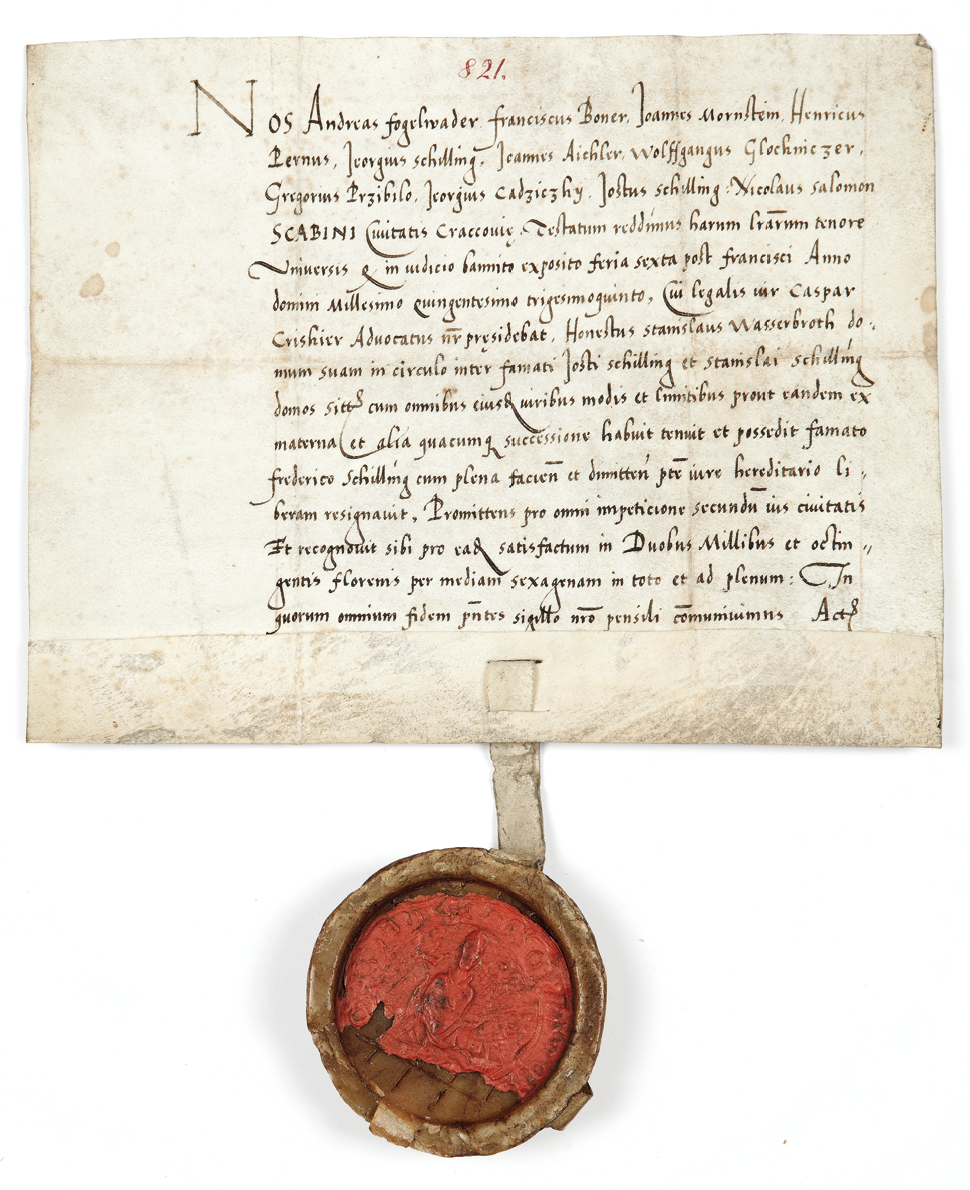 821.
NOS Andreas fogelwader, franciscus Boner, Joannes Mornstein, Henricus
Pernus, Jeorgius schilling, Joannes Aichler, Wolffgangus Glochniczer,
Gregorius Przibilo, Jeorgius Cadziczky, Jostus schilling, Nicolaus salomon
SCABINI Civitatis Craccovię, Testatum reddimus harum lrārum tenore
Universis q in iudicio bannito exposito feria sexta post francisci Anno
domini Millesimo quingentesimo trigesimoquinto, Cui legalis vir Caspar
Criskier Advocatus nr̄ pręsidebat, Honestus stanislaus Wasserbroth do,,
mum suam in circulo inter famati Josti schilling et stanislai schilling
domos sitt cum omnibus eiusq viribus modis et limitibus prout eandem ex
materna et alia quacumq successione habuit tenuit et possedit famato
frederico Schilling cum plena facien̄ et dimitten̄ ptē iure hereditario li,,
beram resignavit, Promittens pro omni impeticione secundū ius civitatis
Et recognovit sibi pro eaq satisfactum in Duobus Millibus et octin,,
gentis florenis per mediam sexagenam in toto et ad plenum: In
quorum omnium fidem pn̄tes sigillo nrō pensili cōmunivimus Act